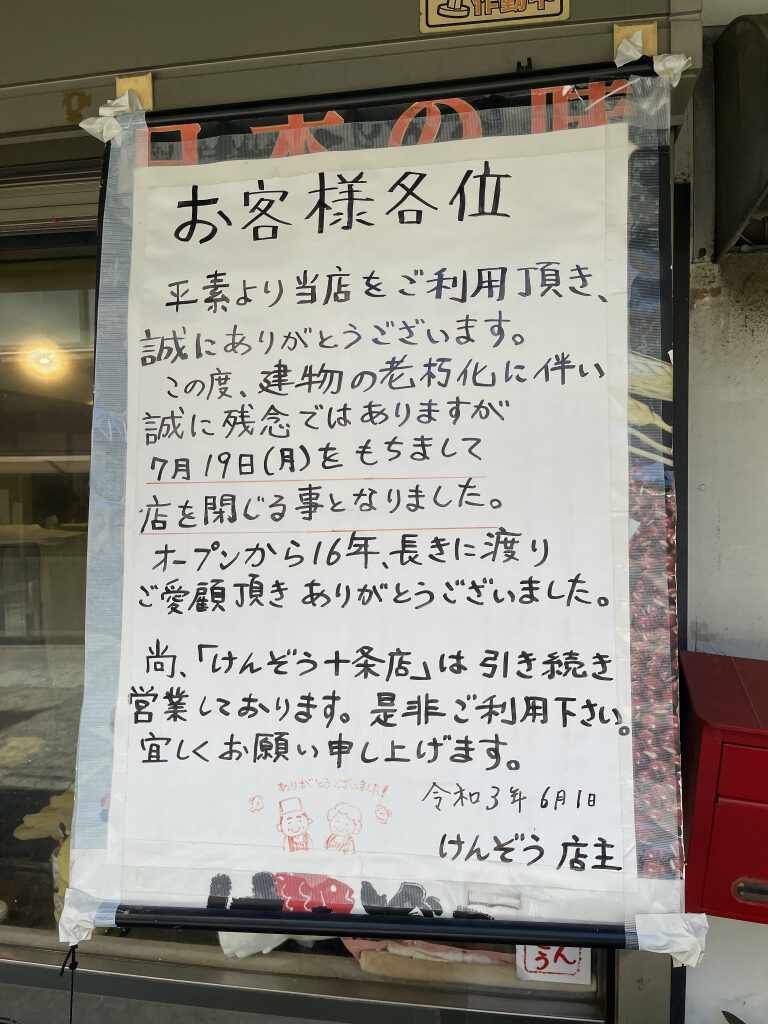 作動中
日本の味
お客様各位
平素より当店をご利用頂き、
誠にありがとうございます。
この度、建物の老朽化に伴い
誠に残念ではありますが
7月19日(月)をもちまして
店を閉じる事となりました。
オープンから16年、長きに渡り
ご愛顧頂きありがとうございました。
尚、「けんぞう十条店」は引き続き
営業しております。是非ご利用下さい。
宜しくお願い申し上げます。
ありがとうございました!
令和3年6月1日
けんぞう店主